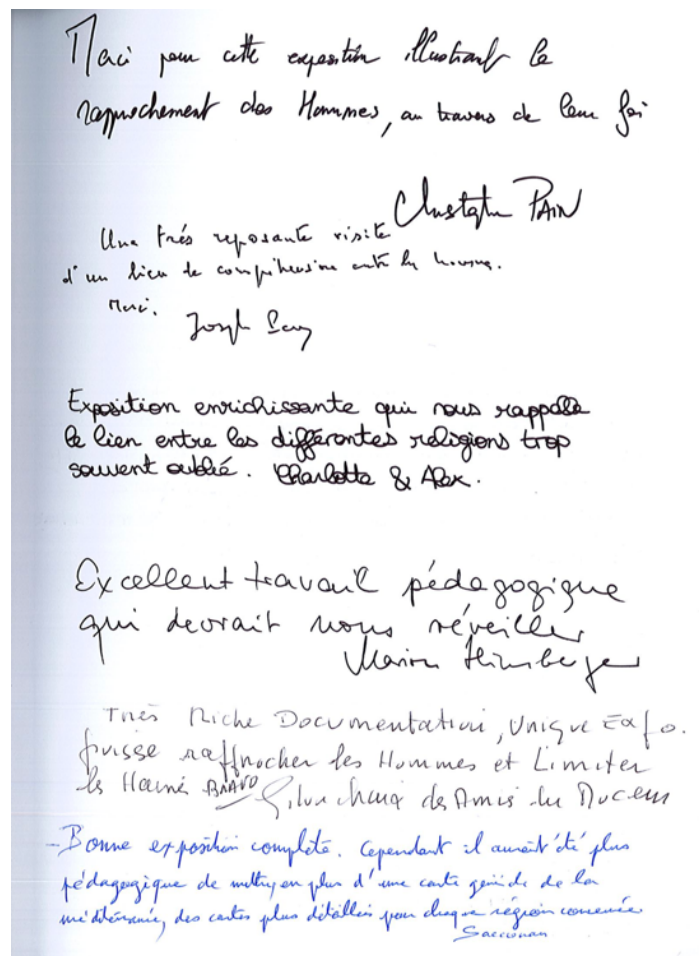 Merci pour cette exposition illustrant le
rapprochement des Hommes, au travers de leur foi
Christophe PAIN
Une très reposante visite
d'un lieu de compréhension entre les hommes.
Merci.
Joseph
Exposition enrichissante qui nous rappelle
le lien entre les différentes religions trop
souvent oublié. Charlotte & Alex.
Excellent travail pédagogique
qui devrait nous réveiller
Marion
Très Riche Documentation, Unique Expo.
puisse rapprocher les Hommes et Limiter
la Haine BRAVO des Amis du Mucem
- Bonne exposition complète. Cependant il aurait été plus
pédagogique de mettre, en plus d'une carte générale de la
méditerranée, des cartes plus détaillées pour chaque région concernée